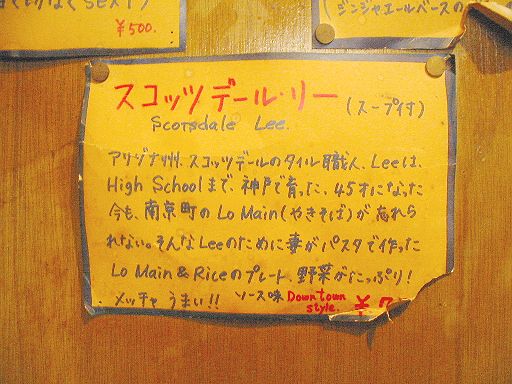 SEXY
¥500.
(ジンジャエールベースの
スコッツデール・リー (スープ付)
Scotsdale Lee.
アリゾナ州、スコッツデールのタイル職人、Leeは、
High Schoolまで、神戸で育った。45才になった
今も、南京町のLo Main(やきそば)が忘れら
れない。そんなLeeのために妻がパスタで作った
Lo Main & Riceのプレート、野菜がたっぷり!
メッチャうまい!! ソース味 Downtown
style. ¥7